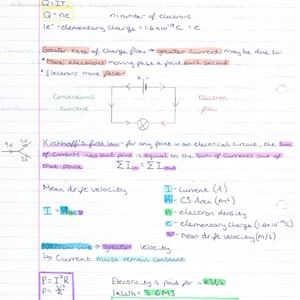 Q = IT
Q = ne    n: number of electrons
1e⁻ = elementary charge = 1.6 x 10⁻¹⁹ C = e
Greater rate of charge flow → greater current. May be due to:
• More electrons moving past a point each second
• Electrons move faster
Conventional current
electron flow
Kirchhoff's first law - for any point in an electrical circuit, the sum
of currents into that point is equal to the sum of currents out of
that point.    ΣI in = ΣI out
Mean drift velocity
I = Anev
I - current (A)
A - CS Area (m²)
n - electron density
e - elementary charge (1.6x10⁻¹⁹C)
v - mean drift velocity (m/s)
Narrow wire → greater velocity
↳ Current must remain constant
P = I²R
Electricity is paid for in kWh
1 kWh = 3.6MJ